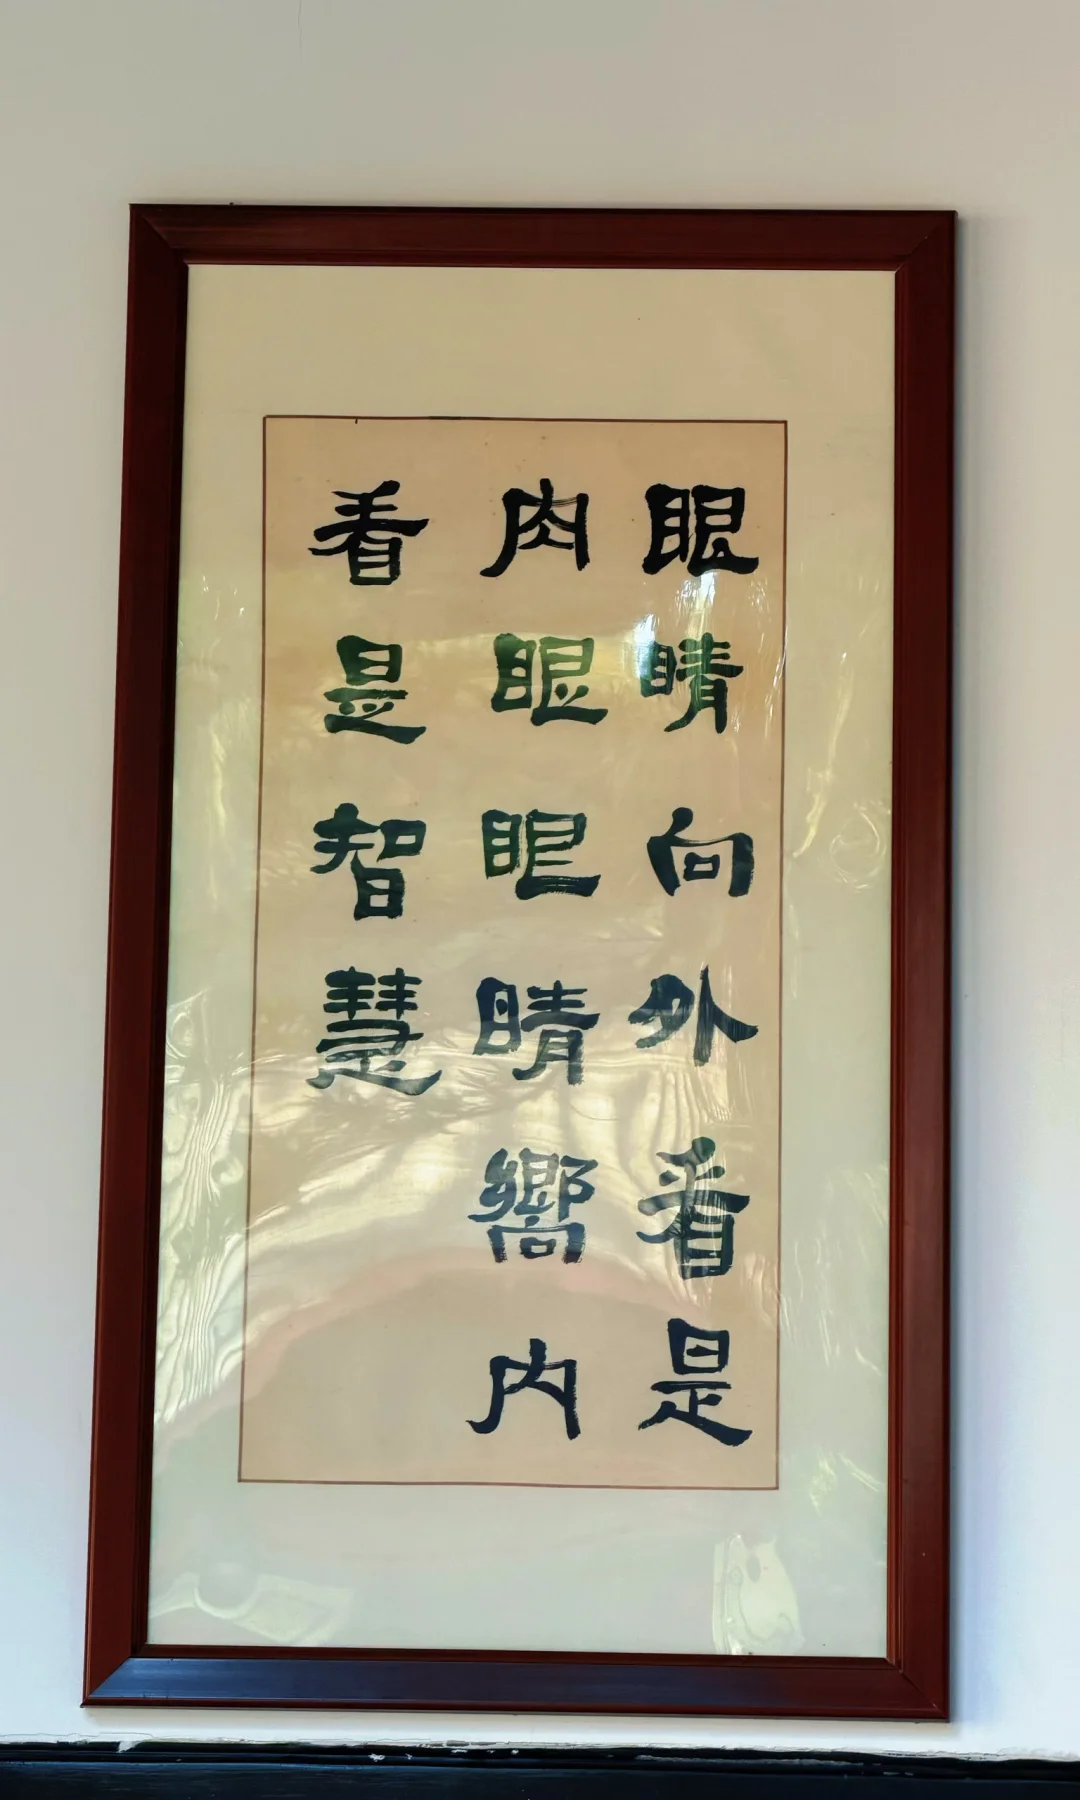 眼睛向外看是
肉眼眼睛嚮内
看是智慧